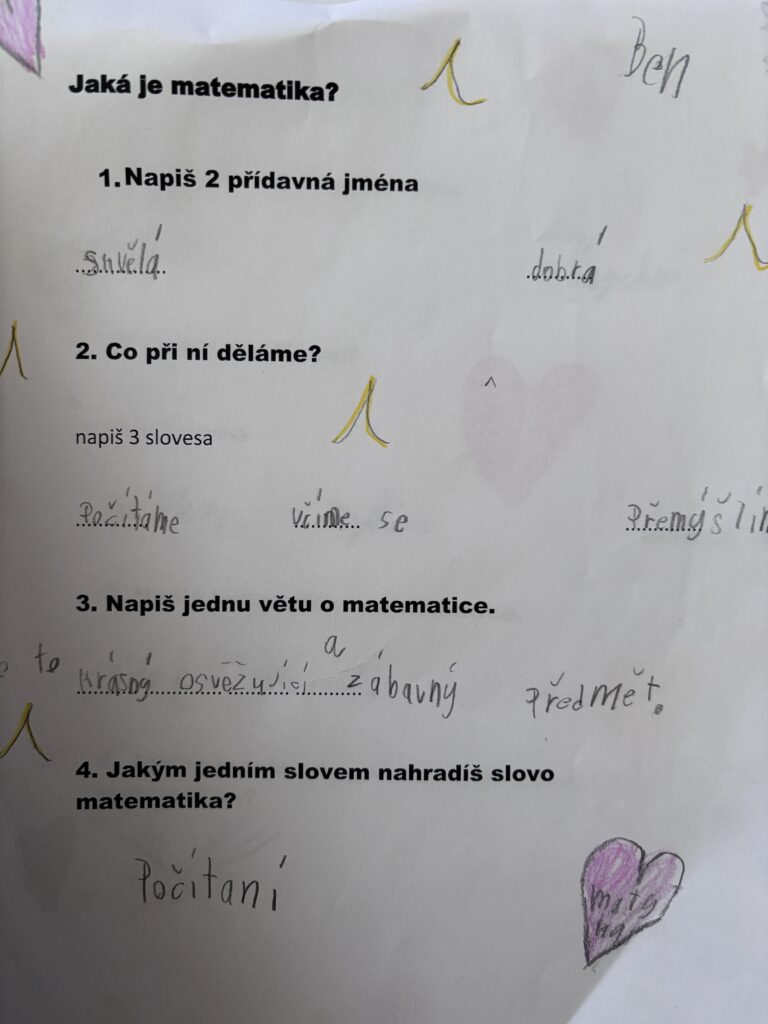 Ben
Jaká je matematika?
1. Napiš 2 přídavná jména
skvělá dobrá
2. Co při ní děláme?
^
napiš 3 slovesa
Počítáme učíme se Přemýšlím
a
te krásný osvěžující zábavný Předmět.
3. Napiš jednu větu o matematice.
4. Jakým jedním slovem nahradíš slovo
matematika?
Počítaní